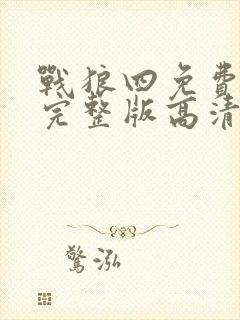 戰狼四免費
完整版高清
驚泓